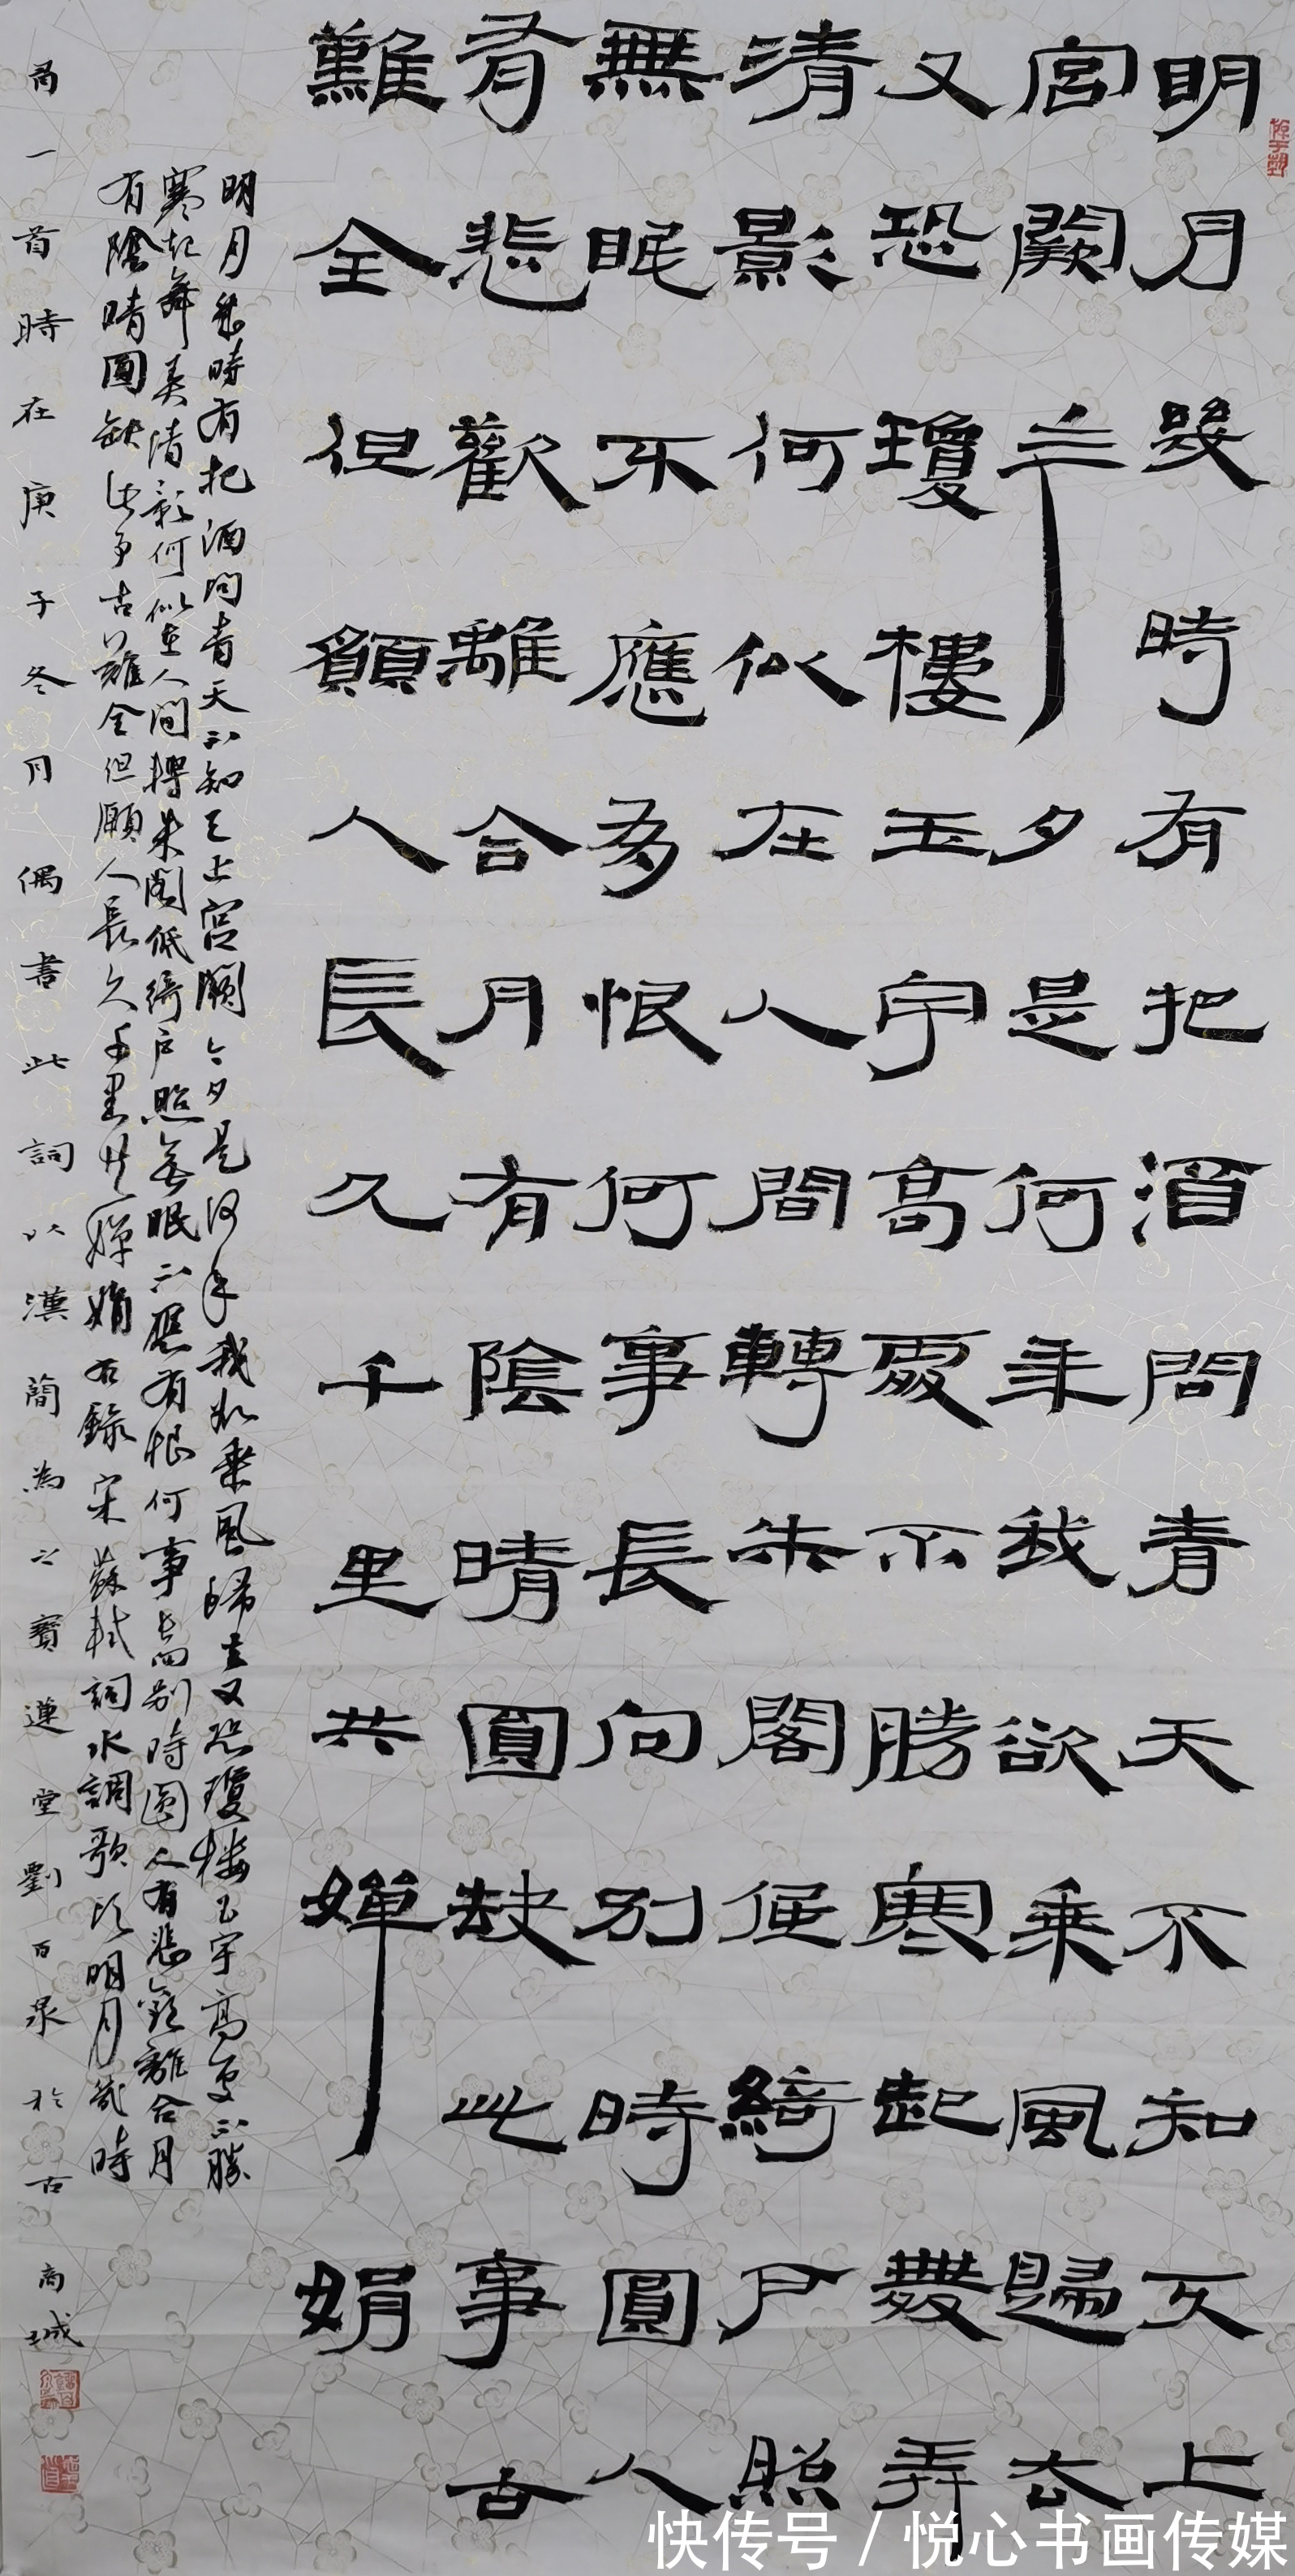 明月幾時有把酒問青天不知天上
宮闕今夕是何年我欲乘風歸去
又恐瓊樓玉宇高處不勝寒起舞弄
清影何似在人間轉朱閣低綺戶照
無眠不應有恨何事長向別時圓人
有悲歡離合月有陰晴圓缺此事古
難全但願人長久千里共嬋娟
明月幾時有把酒問青天不知天上宮闕今夕是何年我欲乘風歸去又恐瓊樓玉宇高處不勝
寒起舞弄清影何似在人間轉朱閣低綺戶照無眠不應有恨何事長向別時圓人有悲歡離合月
有陰晴圓缺此事古難全但願人長久千里共嬋娟右錄宋蘇軾詞水調歌頭明月幾時
有一首時在庚子冬月偶書此詞以漢簡為之寶蓮堂劉百泉於古商城
快传号 / 悦心书画传媒